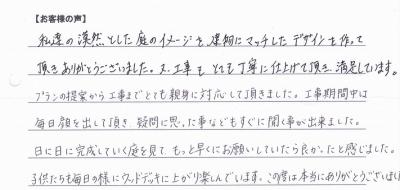 【お客様の声】
私達の漠然とした庭のイメージを建物にマッチしたデザインを作って
頂きありがとうございました。又、工事もとても丁寧に仕上げて頂き、満足しています。
プランの提案から工事までとても親身に対応して頂きました。工事期間中は
毎日顔を出して頂き、疑問に思った事などもすぐに聞く事が出来ました。
日に日に完成していく庭を見て、もっと早くにお願いしていたら良かったと感じました。
子供たちも毎日の様にウッドデッキに上がり楽しんでいます。この度は本当にありがとうございまし